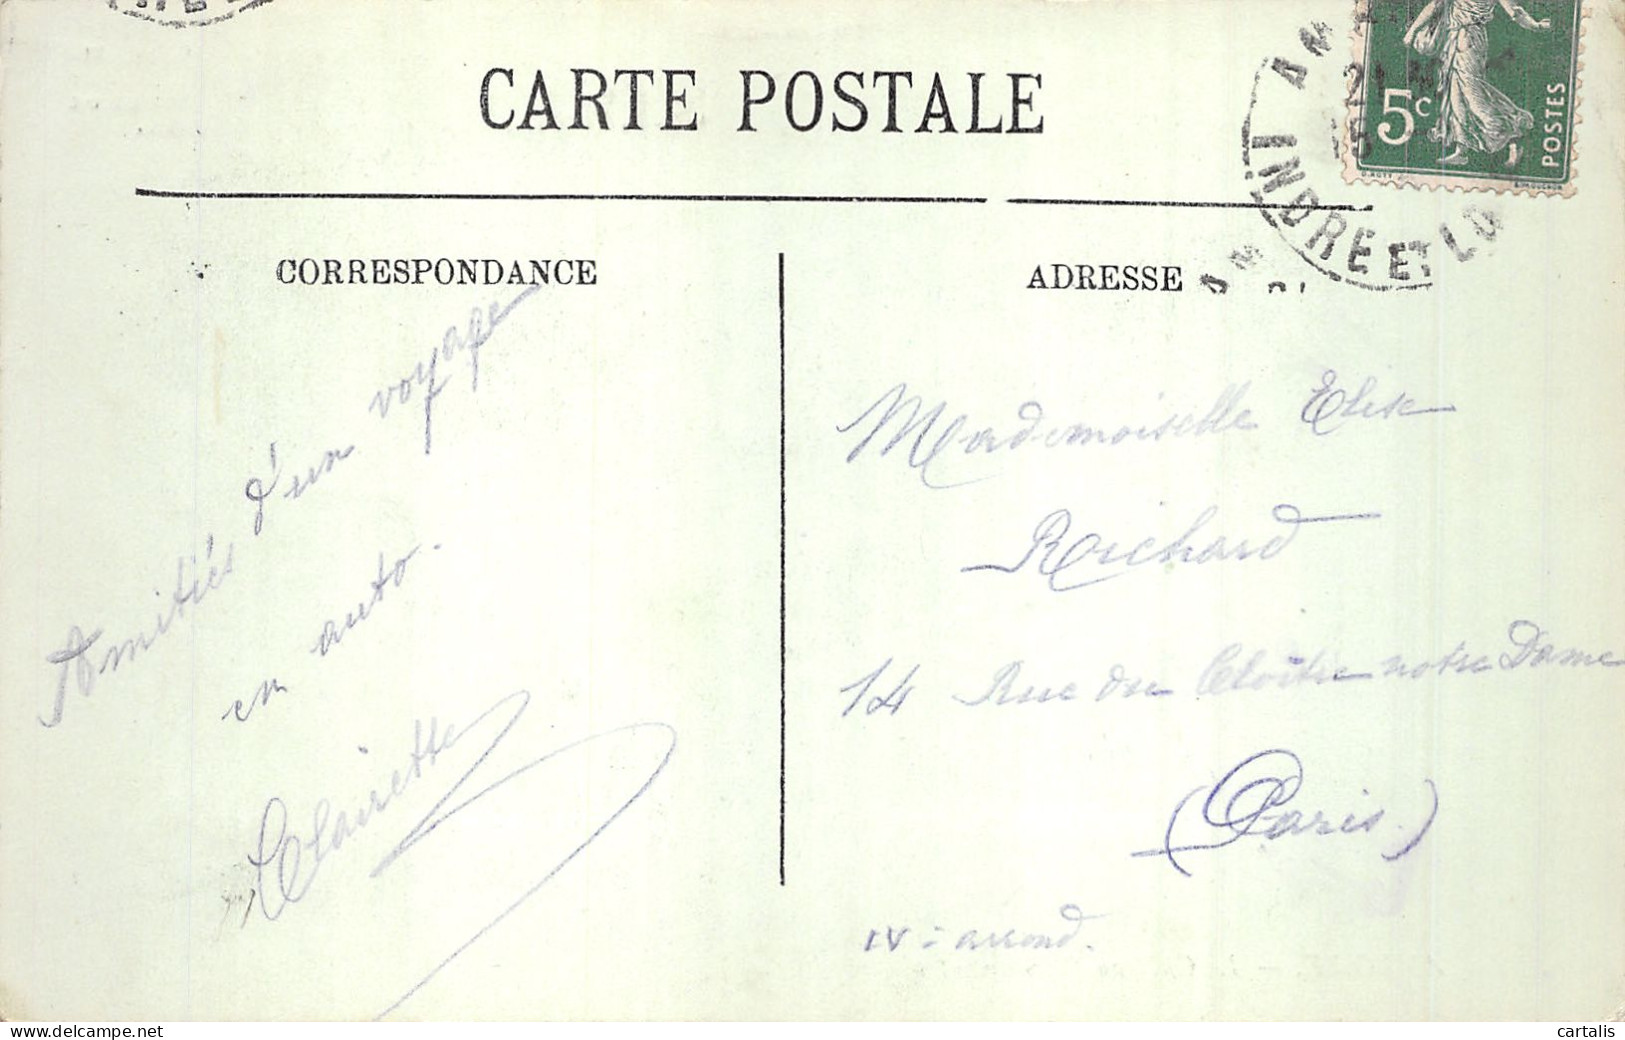 CARTE POSTALE
5c
POSTES
INDRE ET LO
CORRESPONDANCE
ADRESSE
Amitiés d'un voyage
en auto.
Clairette
Mademoiselle Elise
Roichard
14 Rue du Cloître notre Dame
(Paris.)
IV = arrond.
cartalis